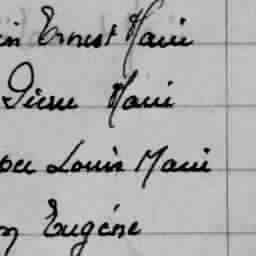 in Ernest Marie
Pierre Marie
Louis Marie
Eugène